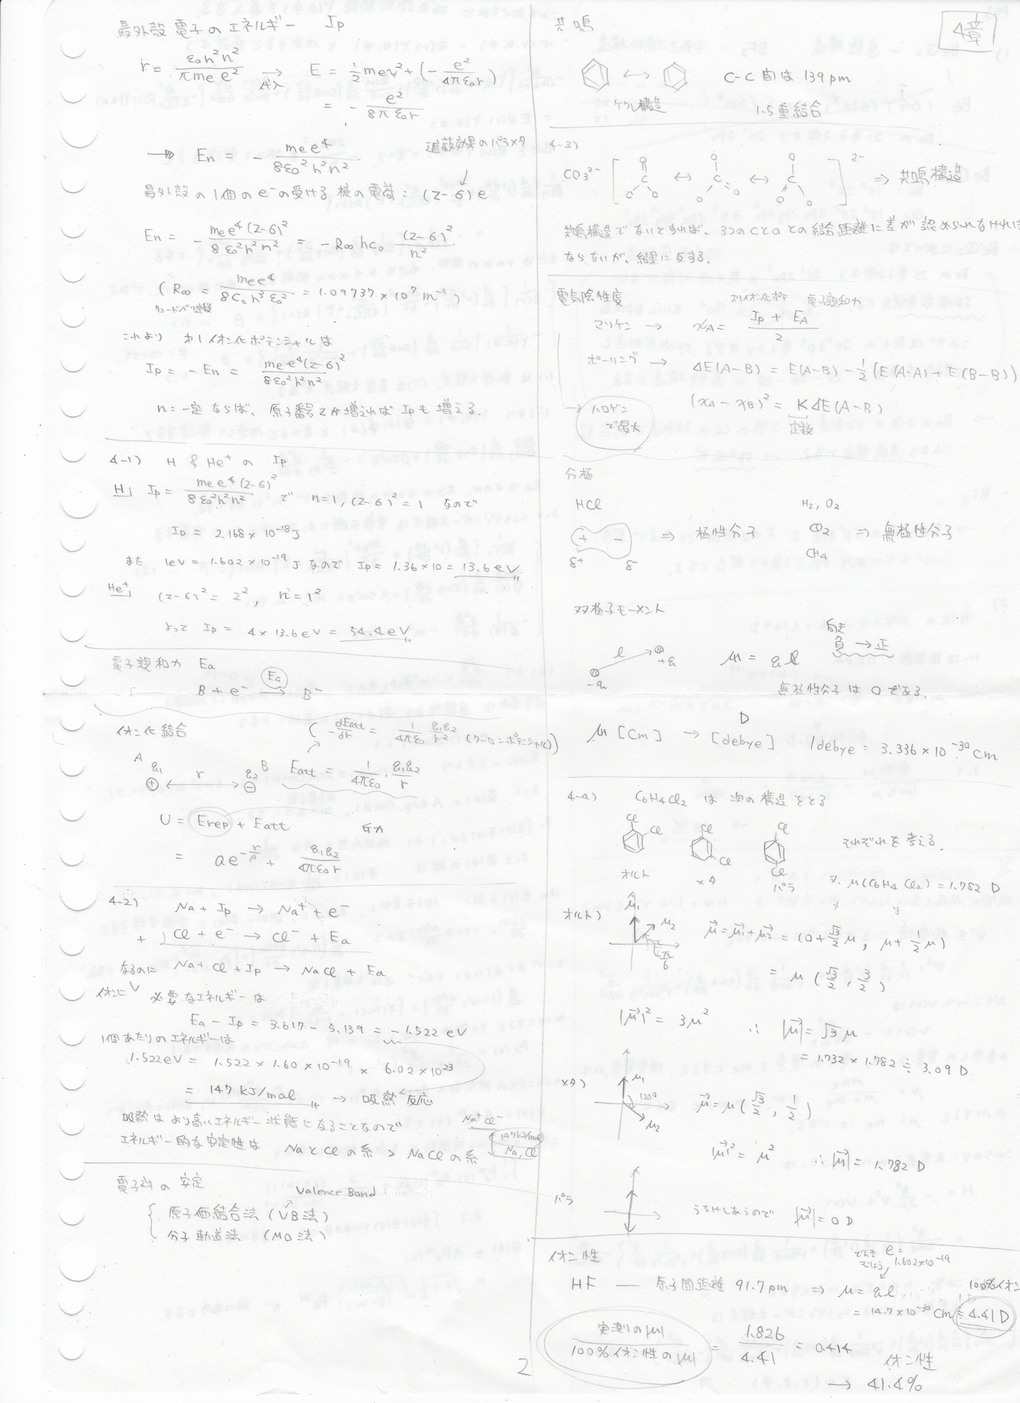 4章
最外殻電子のエネルギー Ip
r = ε₀h²n² / πmee² →代入 E = 1/2 mev² + (- e² / 4πε₀r)
= - e² / 8πε₀r
→ En = - mee⁴ / 8ε₀²h²n²
遮蔽効果のパラメタ
最外殻の1個のe⁻の受ける核の電荷 : (z-6)e
En = - mee⁴(z-6)² / 8ε₀²h²n² = -R∞hc₀ (z-6)² / n²
(R∞ = mee⁴ / 8C₀h³ε₀² = 1.09737×10⁷ m⁻¹)
リュードベリ定数
これより 第1イオン化ポテンシャルは
Ip = -En = mee⁴(z-6)² / 8ε₀²h²n²
n=一定ならば、原子番号Zが増えればIpも増える。
4-1) H と He⁺ の Ip
H」 Ip = mee⁴(z-6)² / 8ε₀²h²n² で n=1, (z-6)²=1 なので
Ip = 2.168×10⁻¹⁸J
また 1eV = 1.602×10⁻¹⁹J なので Ip = 1.36×10 = 13.6eV
He⁺」 (z-6)² = 2², n²=1²
よって Ip = 4×13.6eV = 54.4eV
電子親和力 Ea
B + e⁻ →Ea B⁻
イオン化結合
(- dEatt / dr = 1 / 4πε₀ q₁q₂ / r² (クーロンポテンシャル))
A q₁ ⊕ ← r → q₂ ⊖ B Eatt = 1 / 4πε₀ · q₁q₂ / r
U = Erep + Eatt
斥力
= ae^(-r/ρ) + q₁q₂ / 4πε₀r
4-2) Na + Ip → Na⁺ + e⁻
+ ) Cl + e⁻ → Cl⁻ + Ea
なので Na + Cl + Ip → NaCl + Ea
イオンに必要なエネルギーは
Ea - Ip = 3.617 - 5.139 = -1.522 eV
1個あたりのエネルギーは
1.522eV = 1.522 × 1.60×10⁻¹⁹ × 6.02×10²³
= 147 kJ/mol → 吸熱反応
吸熱はより高いエネルギー状態になることなので
Na⁺Cl⁻
147kJ/mol
Na, Cl
エネルギー的な安定性は NaとClの系 > NaClの系
電子対の安定
Valence Band
原子価結合法 (VB法)
分子軌道法 (MO法)
共鳴
C-C間は 139pm
ケクレ構造
1.5重結合
4-3)
CO₃²⁻ [ O C O O ↔ O C O O ↔ O C O O ]²⁻ ⇒ 共鳴構造
共鳴構造でないとすれば、3つのCとOとの結合距離に差が認められなければ
ならないが、結果に反する。
電気陰性度 第1イオン化ポテ 電子親和力
マリケン → χA = Ip + EA / 2
ポーリング → ΔE(A-B) = E(A-B) - 1/2(E(A-A) + E(B-B))
(χA - χB)² = KΔE(A-B)
定数
→ ハロゲンで最大
分極
HCl
+ -
δ⁺ δ⁻
⇒ 極性分子
H₂, O₂
CO₂
CH₄
⇒ 無極性分子
双極子モーメント
-q l +q μ = ql
向き
負 → 正
無極性分子は0である。
μ [Cm] → D [debye] 1debye = 3.336×10⁻³⁰ Cm
4-4) C₆H₄Cl₂ は 次の構造をとる
Cl Cl Cl Cl Cl Cl
それぞれを考える。
オルト メタ パラ
又、μ(C₆H₄Cl₂) = 1.782 D
オルト) μ₁ μ₂ π/6 μ = μ₁ + μ₂ = (0 + √3/2 μ, μ + 1/2 μ)
= μ (√3/2, 3/2)
|μ|² = 3μ² ∴ |μ| = √3μ
= 1.732×1.782 ≒ 3.09 D
メタ) μ₁ 120° μ₂ μ = μ(√3/2, 1/2)
|μ|² = μ² ∴|μ| = 1.782 D
パラ うちけしあうので |μ| = 0 D
イオン性
でんきそりょう e = 1.602×10⁻¹⁹
HF — 原子間距離 91.7pm ⇒ μ = ql
100%イオン
= 14.7×10⁻³⁰ Cm ≒ 4.41 D
実測の|μ| / 100%イオン性の|μ| = 1.826 / 4.41 = 0.414
イオン性
→ 41.4%
2